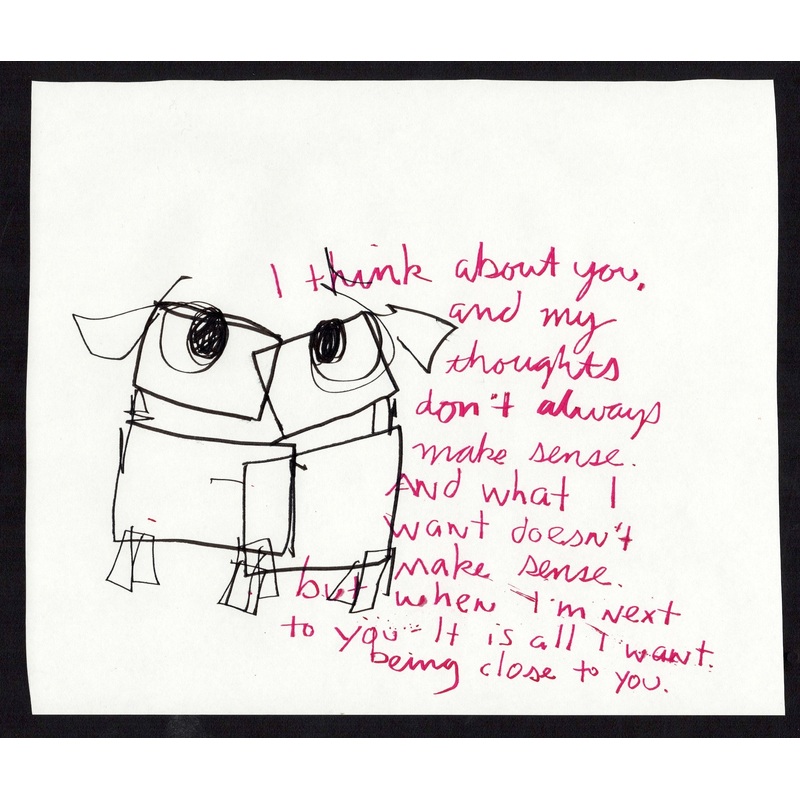 I think about you,
and my
thoughts
don't always
make sense.
And what I
want doesn't
make sense.
but when I'm next
to you - It is all I want.
being close to you.